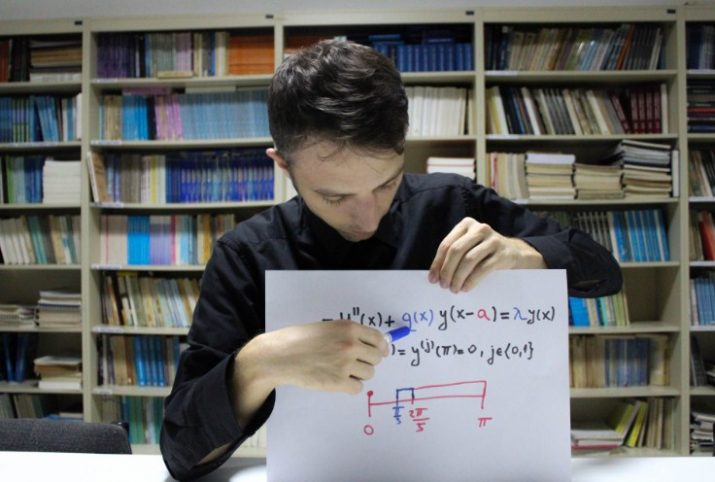 − y''(x) + q(x) y(x−a) = λy(x)
) = y⁽ʲ⁾(π) = 0 , j∈{0,1}
0 π/5 2π/5 π